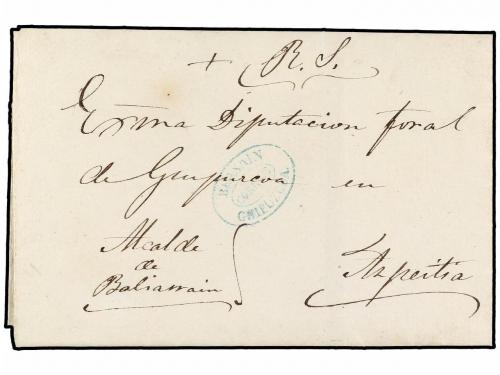 + R. S.
Exma Diputacion foral
de Guipuzcoa en
Alcalde
de
Baliarrain
Azpeitia
GUIPUZCOA